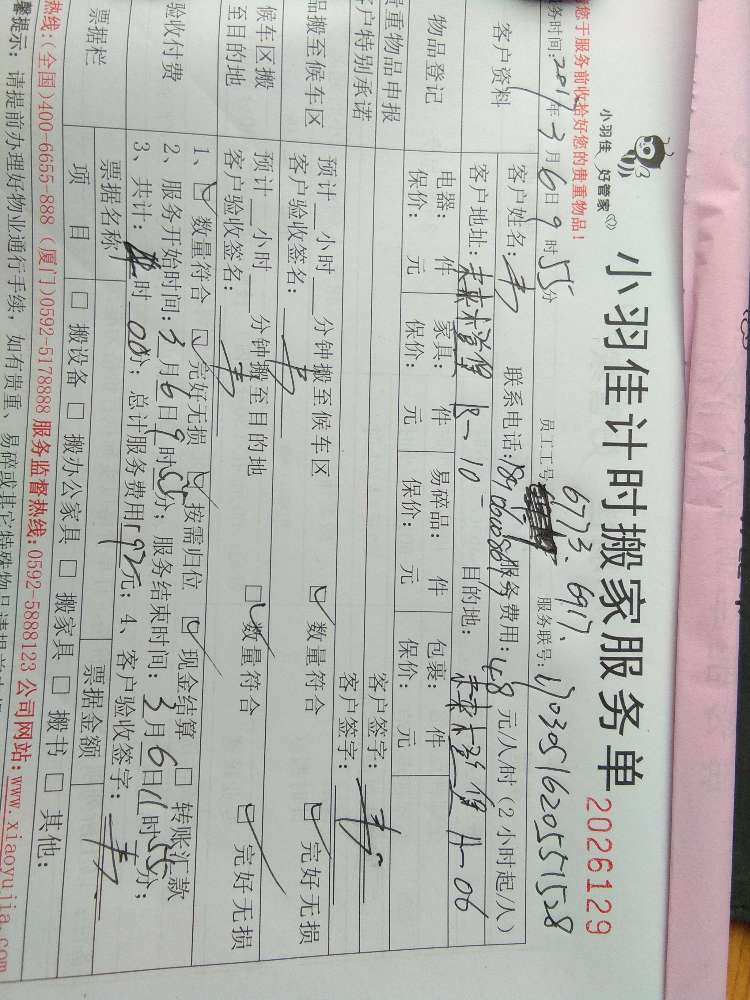 小羽佳 好管家
小羽佳计时搬家服务单 2026129
您于服务前收拾好您的贵重物品!
员工工号: 6773、6917、 服务联号: 1703051620551528
务时间: 2017年3月6日9时55分
客户资料 客户姓名: 联系电话: 服务费用: 48元/人/时(2小时起/人)
客户地址: 未来橙堡 B-10- 目的地: 未来橙堡 A-06
物品登记 电器: 件 家具: 件 易碎品: 件 包裹: 件
保价: 元 保价: 元 保价: 元 保价: 元
贵重物品申报 客户签字:
客户特别承诺 客户签字:
品搬至候车区 预计 小时 分钟搬至候车区 ☑ 数量符合 ☑ 完好无损
客户验收签名:
候车区搬至目的地 预计 小时 分钟搬至目的地 ☑ 数量符合 ☑ 完好无损
客户验收签名:
验收付费 1、☑ 数量符合 ☑ 完好无损 ☑ 按需归位 ☑ 现金结算 □ 转账汇款
2、服务开始时间: 3月6日9时55分; 服务结束时间: 3月6日11时55分;
3、共计: 时00分; 总计服务费用192元; 4、客户验收签字:
票据栏 票据名称 票据金额
项目 □ 搬设备 □ 搬办公家具 □ 搬家具 □ 搬书 □ 其他:
热线:(全国)400-6655-888 (厦门)0592-5178888 服务监督热线:0592-5888123 公司网站:www.xiaoyujia.com
馨提示: 请提前办理好物业通行手续, 如有贵重、易碎或其它特殊物品请提前